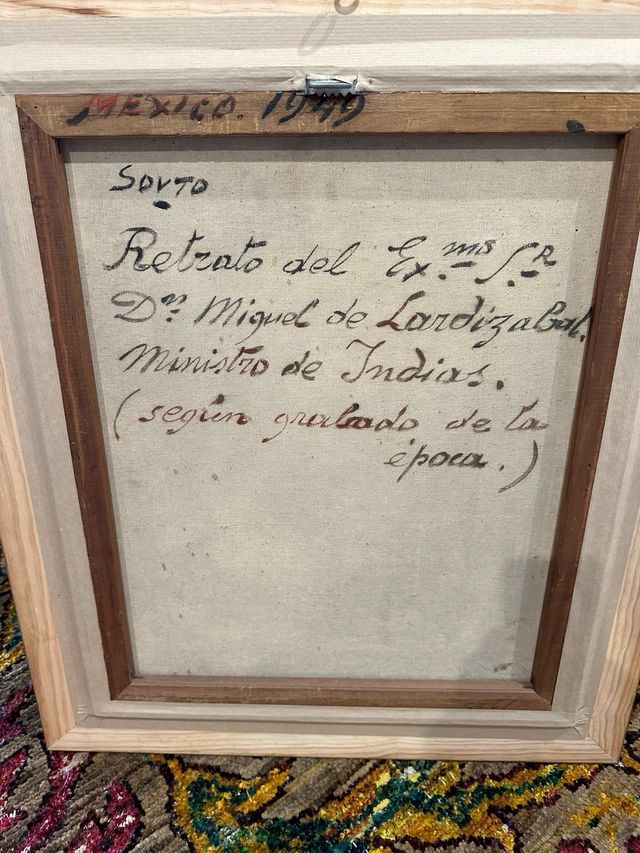 MEXICO. 1949
SOUTO
Retrato del Ex.mo S.R
Dn. Miguel de Lardizabal.
Ministro de Indias.
(según grabado de la
época.)